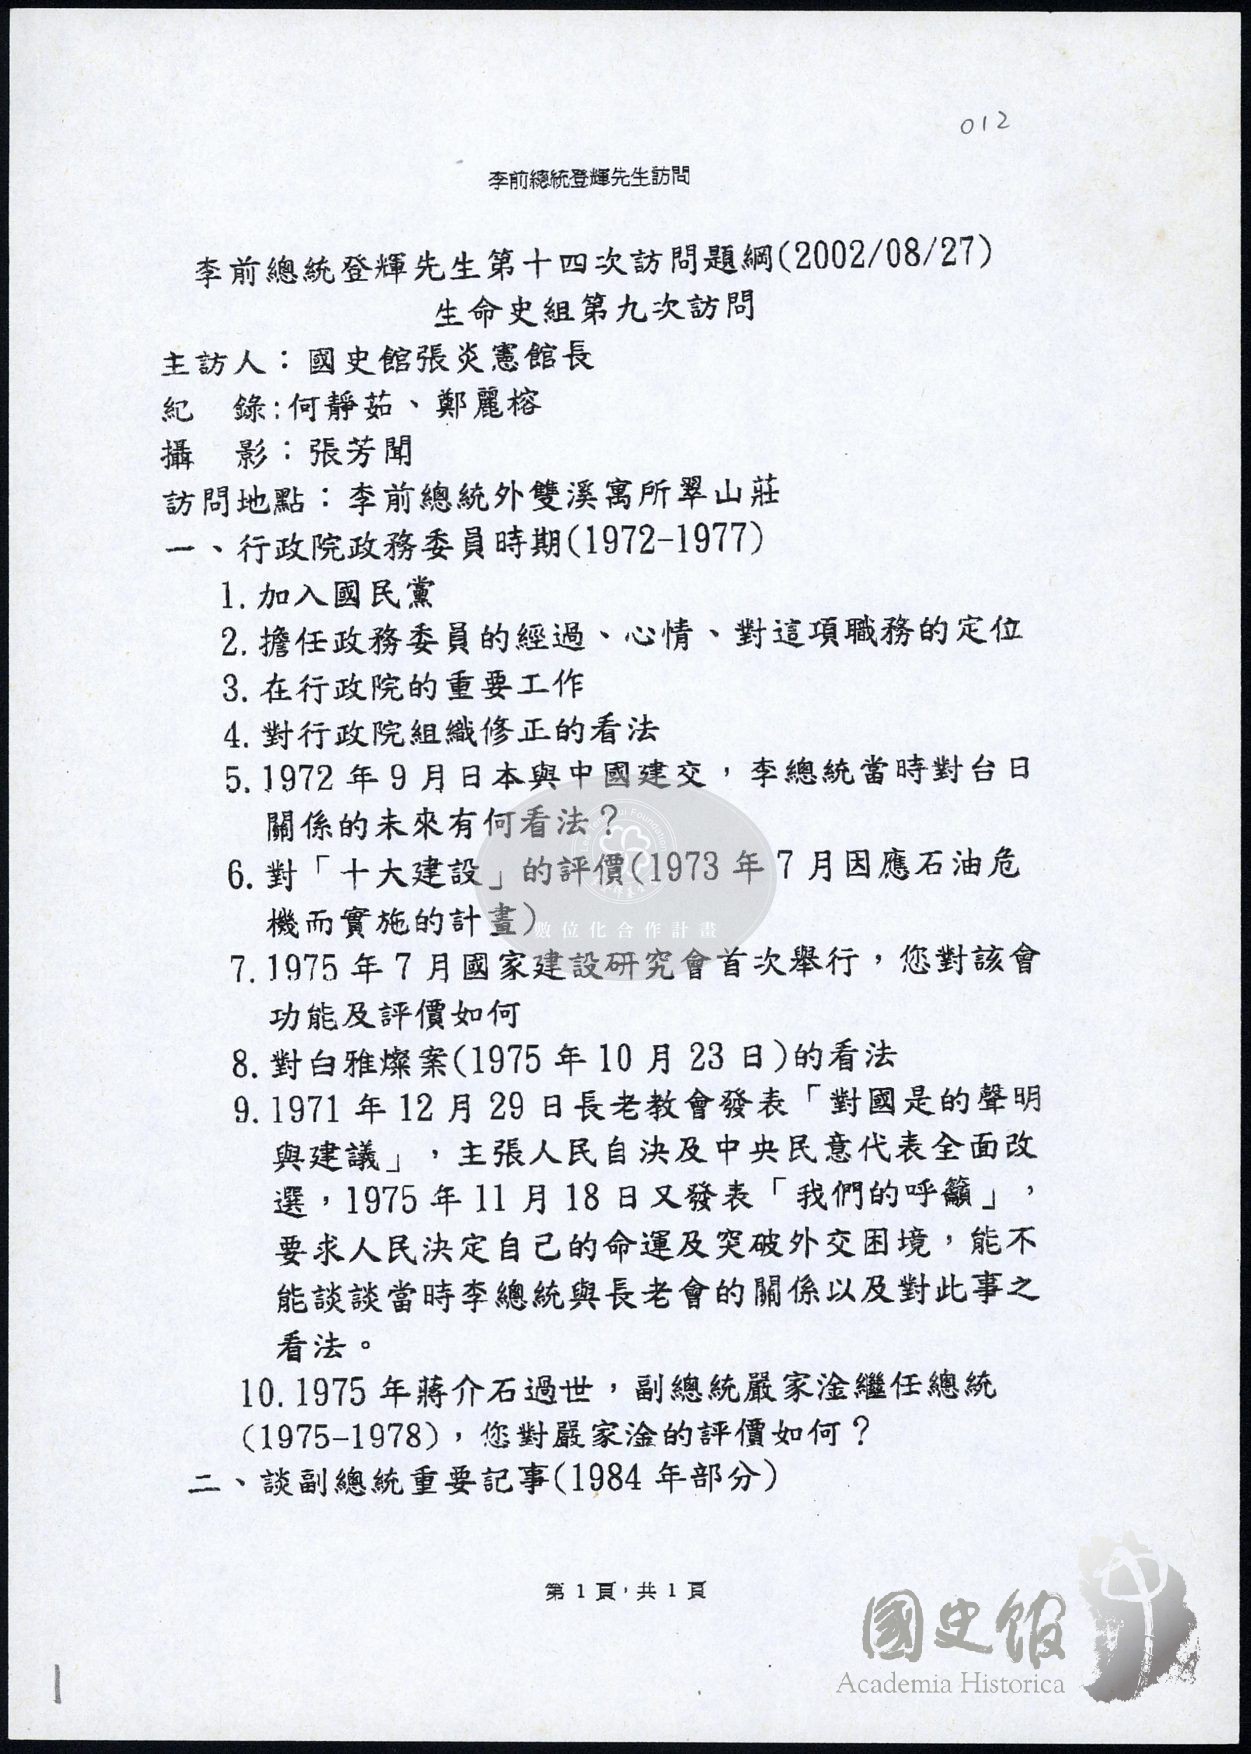 012
李前總統登輝先生訪問
李前總統登輝先生第十四次訪問題綱(2002/08/27)
生命史組第九次訪問
主訪人：國史館張炎憲館長
紀　錄:何靜茹、鄭麗榕
攝　影：張芳聞
訪問地點：李前總統外雙溪寓所翠山莊
一、行政院政務委員時期(1972-1977)
1.加入國民黨
2.擔任政務委員的經過、心情、對這項職務的定位
3.在行政院的重要工作
4.對行政院組織修正的看法
5.1972 年 9 月日本與中國建交，李總統當時對台日
關係的未來有何看法？
6.對「十大建設」的評價(1973 年 7 月因應石油危
機而實施的計畫)
數位化合作計畫
7.1975 年 7 月國家建設研究會首次舉行，您對該會
功能及評價如何
8.對白雅燦案(1975 年 10 月 23 日)的看法
9.1971 年 12 月 29 日長老教會發表「對國是的聲明
與建議」，主張人民自決及中央民意代表全面改
選，1975 年 11 月 18 日又發表「我們的呼籲」，
要求人民決定自己的命運及突破外交困境，能不
能談談當時李總統與長老會的關係以及對此事之
看法。
10.1975 年蔣介石過世，副總統嚴家淦繼任總統
(1975-1978)，您對嚴家淦的評價如何？
二、談副總統重要記事(1984 年部分)
第 1 頁，共 1 頁
國史館
Academia Historica
1